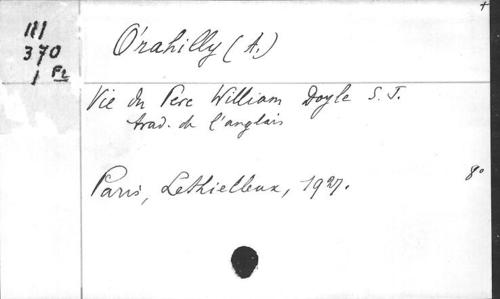 III
370
1 Fl
O'rahilly (A.)
Vie du Père William Doyle S.J.
trad. de l'anglais
Paris, Lethielleux, 1927.
8°